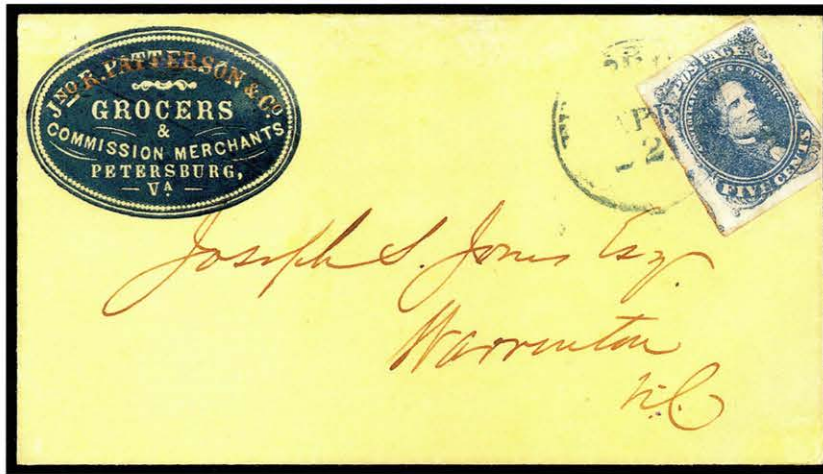 JNO R. PATTERSON & CO
GROCERS
&
COMMISSION MERCHANTS
PETERSBURG,
VA
AP
2
POSTAGE
CONFEDERATE STATES OF AMERICA
FIVE CENTS
Joseph S. Jones Esq.
Warrenton
N.C.